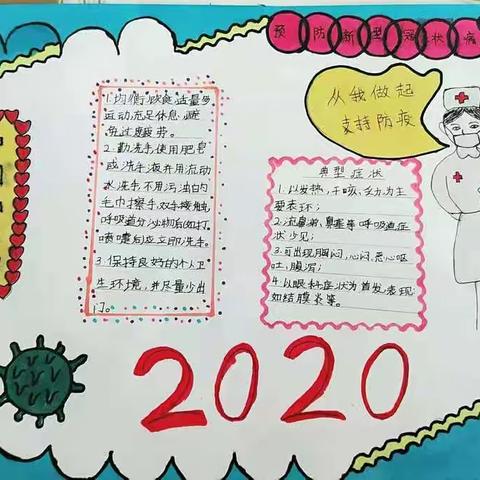 预防新型冠状病
从我做起
支持防疫
1.均衡饮食适量
运动充足休息,避
免过度疲劳。
2.勤洗手使用肥皂
或洗手液并用流动
水洗手不用污浊的
毛巾擦手,双手接触
呼吸道分泌物后(如打
喷嚏后)应立即洗手。
3.保持良好的个人卫
生环境,并尽量少出
门。
典型症状
1.以发热,干咳,乏力为主
要表现;
2.流鼻涕,鼻塞等呼吸道症
状少见;
3.可出现胸闷,心闷,恶心呕
吐,腹泻;
4.以眼科症状为首发表现:
如结膜炎等。
2020